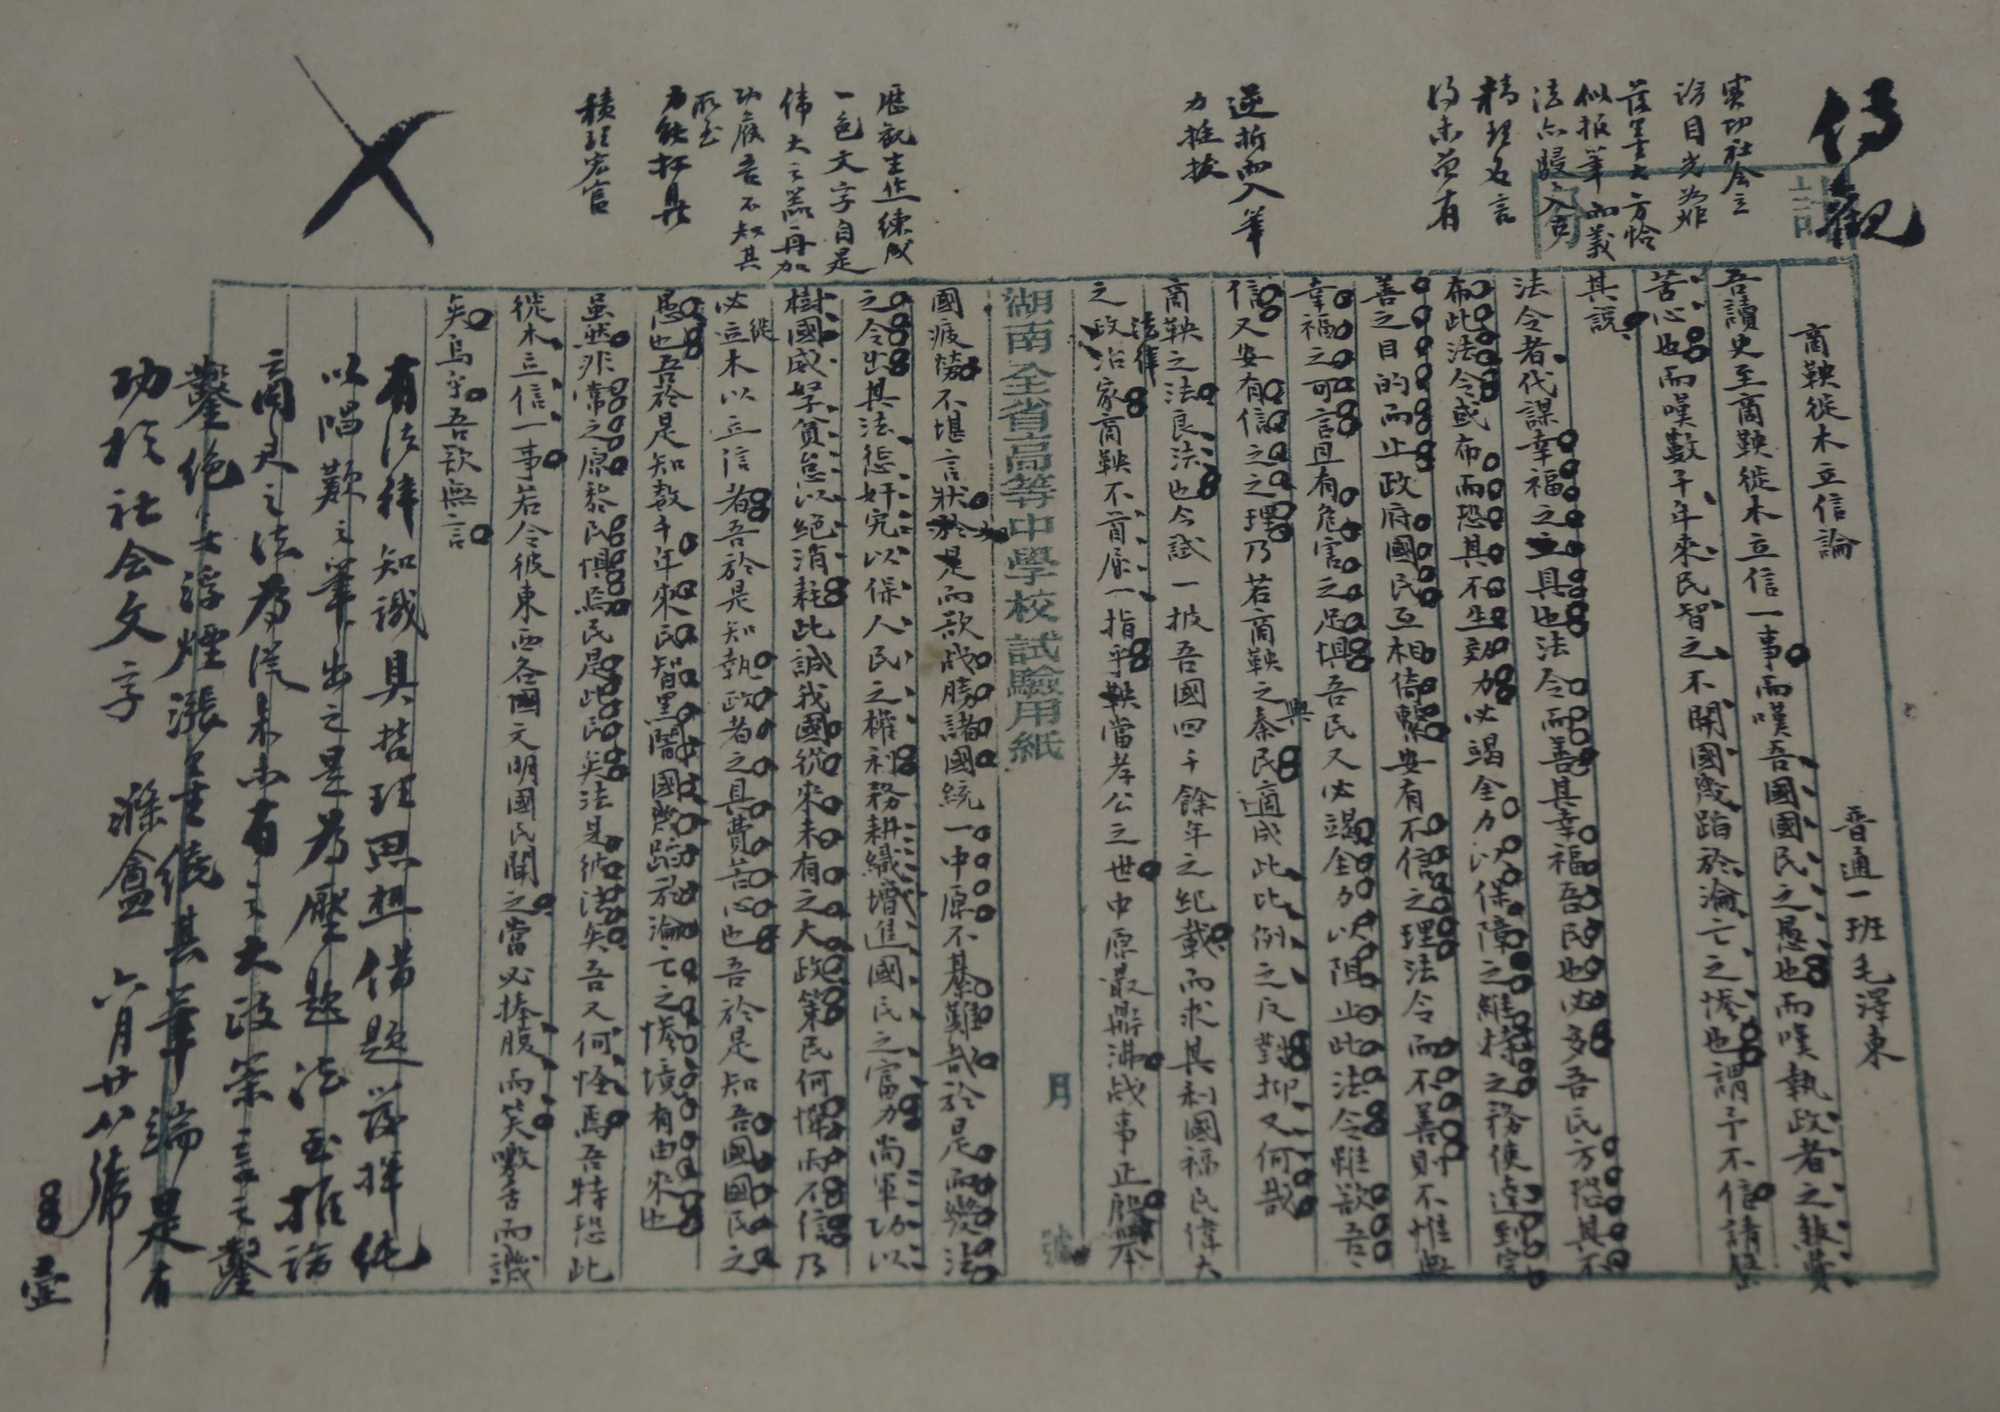 傳觀
實切社會立
論目光如炬
落墨大方恰
似報筆而義
法亦駸入古
精理名言
得未曾有
逆折而入筆
力挺拔
歷觀生作練成
一色文字自是
偉大之器再加
功候吾不知其
所至
力能扛鼎
積理宏富
商鞅徙木立信論
普通一班毛澤東
吾讀史至商鞅徙木立信一事而嘆吾國國民之愚也而嘆執政者之煞費
苦心也而嘆數千年來民智之不開國幾蹈於淪亡之慘也謂予不信請罄
其說
法令者代謀幸福之具也法令而善其幸福吾民也必多吾民方恐其不
布此法令或布而恐其不生效力必竭全力以保障之維持之務使達到完
善之目的而止政府國民互相倚繫安有不信之理法令而不善則不惟無
幸福之可言且有危害之足懼吾民又必竭全力以阻止此法令雖欲吾
信又安有信之之理乃若商鞅之與秦民適成此比例之反對抑又何哉
商鞅之法良法也今試一披吾國四千餘年之紀載而求其利國福民偉大
之政治家商鞅不首屈一指乎鞅當孝公之世中原鼎沸戰事正殷舉
法律
湖南全省高等中學校試驗用紙
月
號
國疲勞不堪言狀於是而欲戰勝諸國統一中原不綦難哉於是而變法
之令出其法懲奸宄以保人民之權利務耕織以增進國民之富力尚軍功以
樹國威孥貧怠以絕消耗此誠我國從來未有之大政策民何憚而不信乃
必徙木以立信者吾於是知執政者之具費苦心也吾於是知吾國國民之
愚也吾於是知數千年來民智黑闇國幾蹈於淪亡之慘境有由來也
雖然非常之原黎民懼焉民是此民矣法是彼法矣吾又何怪焉吾特恐此
徙木立信一事若令彼東西各國文明國民聞之當必捧腹而笑噭舌而譏
矣烏乎吾欲無言
有法律知識具哲理思想借題發揮純
以唱歎之筆出之是為壓題法至推論
商君之法為從來未有之大政策言之鑿
鑿絕無浮煙漲墨繞其筆端是有
功於社會文字
滌盦 六月廿八號